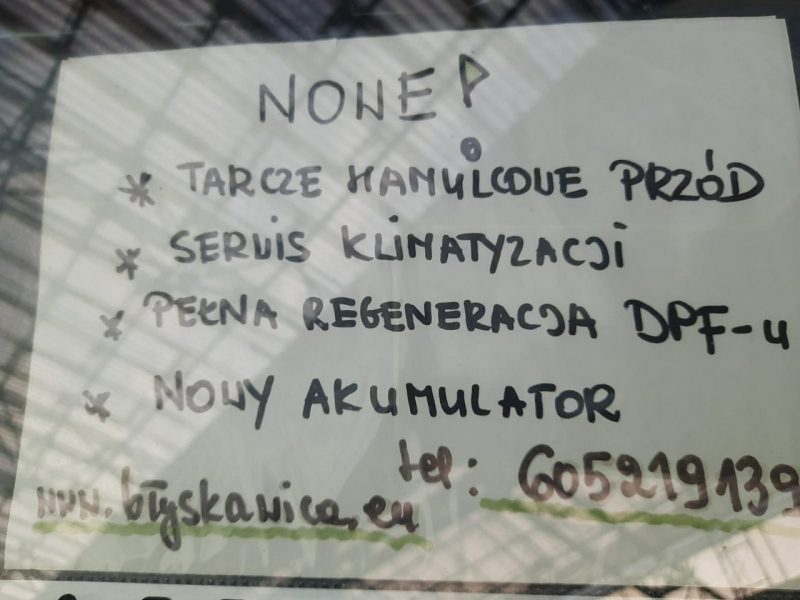 NOWE P
* TARCZE HAMULCOWE PRZÓD
* SERWIS KLIMATYZACJI
* PEŁNA REGENERACJA DPF-u
* NOWY AKUMULATOR
tel: 605219139
www.błyskawica.eu